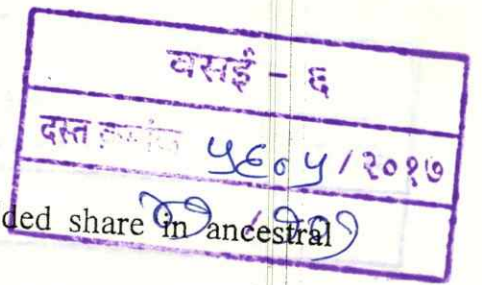 वसई - ६
दस्त क्रमांक ५६०५ / २०१७
ded share in ancestral